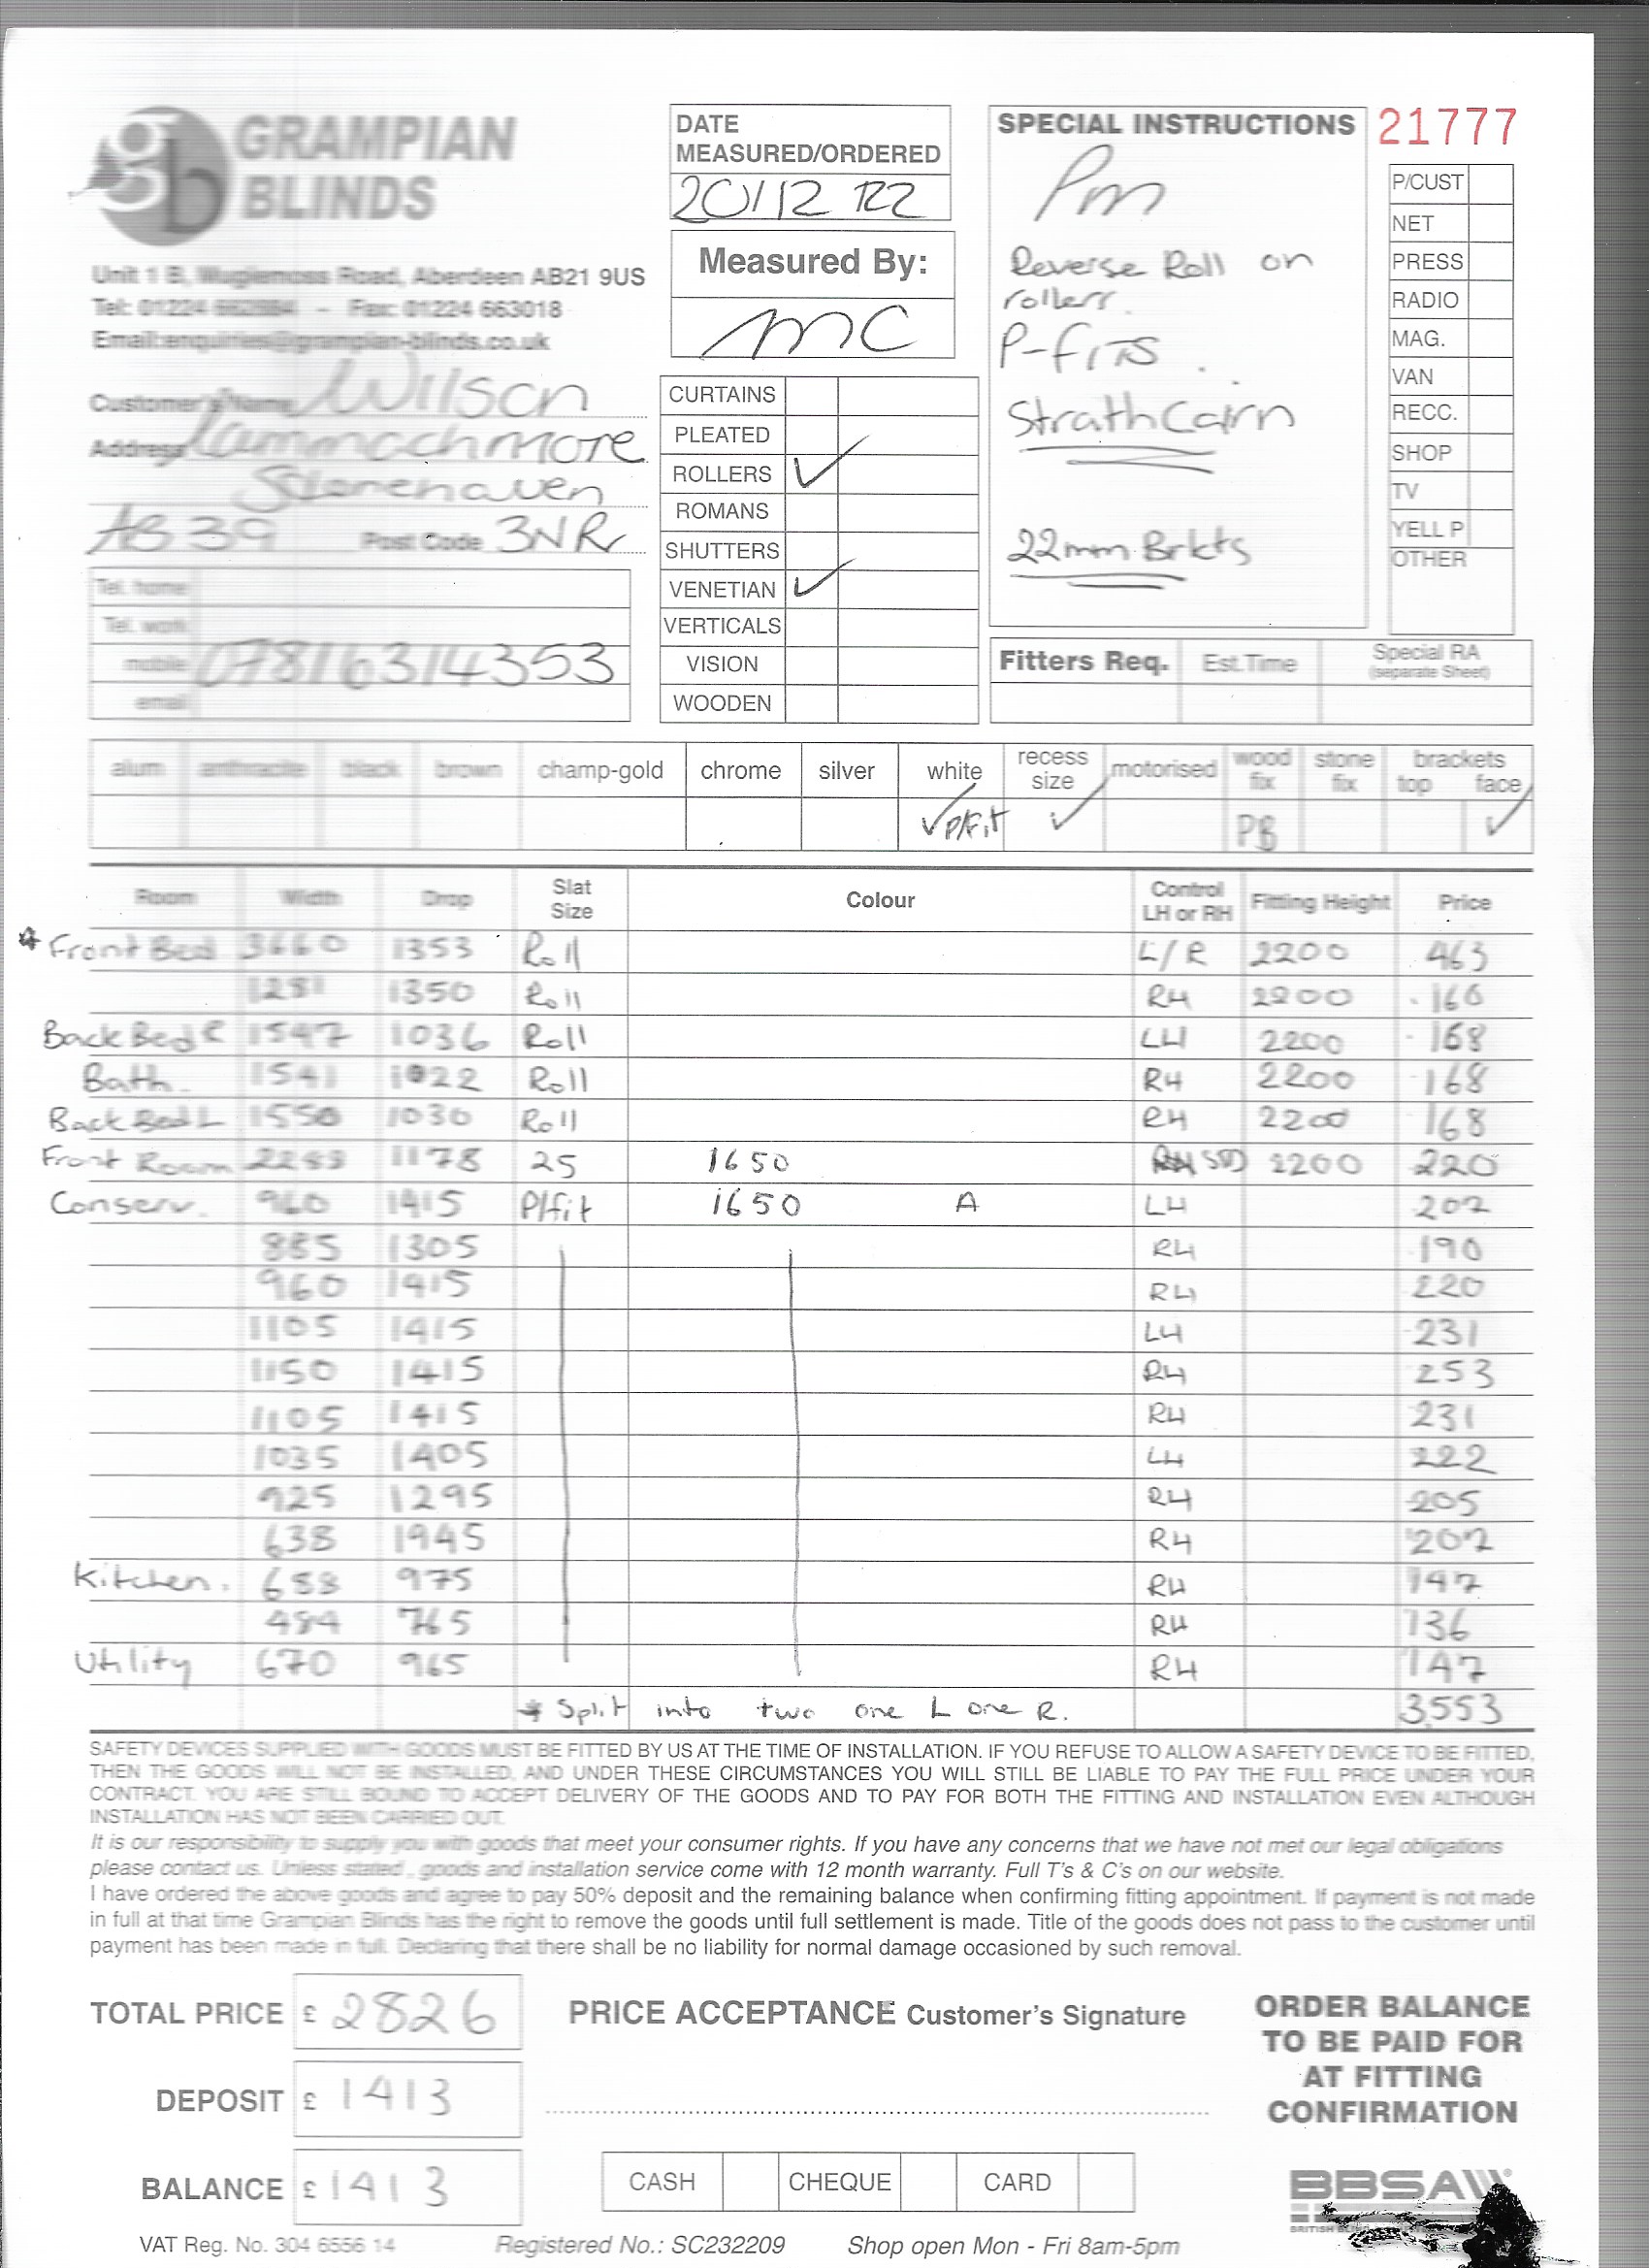 GRAMPIAN
BLINDS
Unit 1 B, Wuglemoss Road, Aberdeen AB21 9US
Tel: 01224 - Fax: 01224 663018
Email:enquiries@grampian-blinds.co.uk
Customer's Name Wilson
Address Cammachmore
Stonehaven
AB39 Post Code 3NR
Tel. home
Tel. work
mobile 07816314353
email
DATE
MEASURED/ORDERED
20/12/22
Measured By:
MC
CURTAINS
PLEATED
ROLLERS ✓
ROMANS
SHUTTERS
VENETIAN ✓
VERTICALS
VISION
WOODEN
SPECIAL INSTRUCTIONS
Pm
Reverse Roll on
rollers.
P-fits.
StrathCairn
22mm Brkts
21777
P/CUST
NET
PRESS
RADIO
MAG.
VAN
RECC.
SHOP
TV
YELL P
OTHER
Fitters Req. Est.Time Special RA
(separate Sheet)
alum anthracite black brown champ-gold chrome silver white recess size motorised wood fix stone fix brackets top face
✓ P/Fit ✓ PB ✓
Room Width Drop Slat Size Colour Control LH or RH Fitting Height Price
* Front Bed 3660 1353 Roll L/R 2200 463
1281 1350 Roll RH 2200 166
Back Bed R 1547 1036 Roll LH 2200 168
Bath. 1541 1022 Roll RH 2200 168
Back Bed L 1550 1030 Roll RH 2200 168
Front Room 1178 25 1650 STD 2200 220
Conserv. 960 1415 P/fit 1650 A LH 202
885 1305 RH 190
960 1415 RH 220
1105 1415 LH 231
1150 1415 RH 253
1105 1415 RH 231
1035 1405 LH 222
925 1295 RH 205
638 1945 RH 202
Kitchen. 688 975 RH 147
484 765 RH 136
Utility 670 965 RH 147
* Split into two one L one R. 3553
SAFETY DEVICES SUPPLIED WITH GOODS MUST BE FITTED BY US AT THE TIME OF INSTALLATION. IF YOU REFUSE TO ALLOW A SAFETY DEVICE TO BE FITTED,
THEN THE GOODS WILL NOT BE INSTALLED, AND UNDER THESE CIRCUMSTANCES YOU WILL STILL BE LIABLE TO PAY THE FULL PRICE UNDER YOUR
CONTRACT. YOU ARE STILL BOUND TO ACCEPT DELIVERY OF THE GOODS AND TO PAY FOR BOTH THE FITTING AND INSTALLATION EVEN ALTHOUGH
INSTALLATION HAS NOT BEEN CARRIED OUT.
It is our responsibility to supply you with goods that meet your consumer rights. If you have any concerns that we have not met our legal obligations
please contact us. Unless stated, goods and installation service come with 12 month warranty. Full T's & C's on our website.
I have ordered the above goods and agree to pay 50% deposit and the remaining balance when confirming fitting appointment. If payment is not made
in full at that time Grampian Blinds has the right to remove the goods until full settlement is made. Title of the goods does not pass to the customer until
payment has been made in full. Declaring that there shall be no liability for normal damage occasioned by such removal.
TOTAL PRICE £ 2826
DEPOSIT £ 1413
BALANCE £ 1413
PRICE ACCEPTANCE Customer's Signature
CASH CHEQUE CARD
ORDER BALANCE
TO BE PAID FOR
AT FITTING
CONFIRMATION
BBSA
VAT Reg. No. 304 6556 14 Registered No.: SC232209 Shop open Mon - Fri 8am-5pm